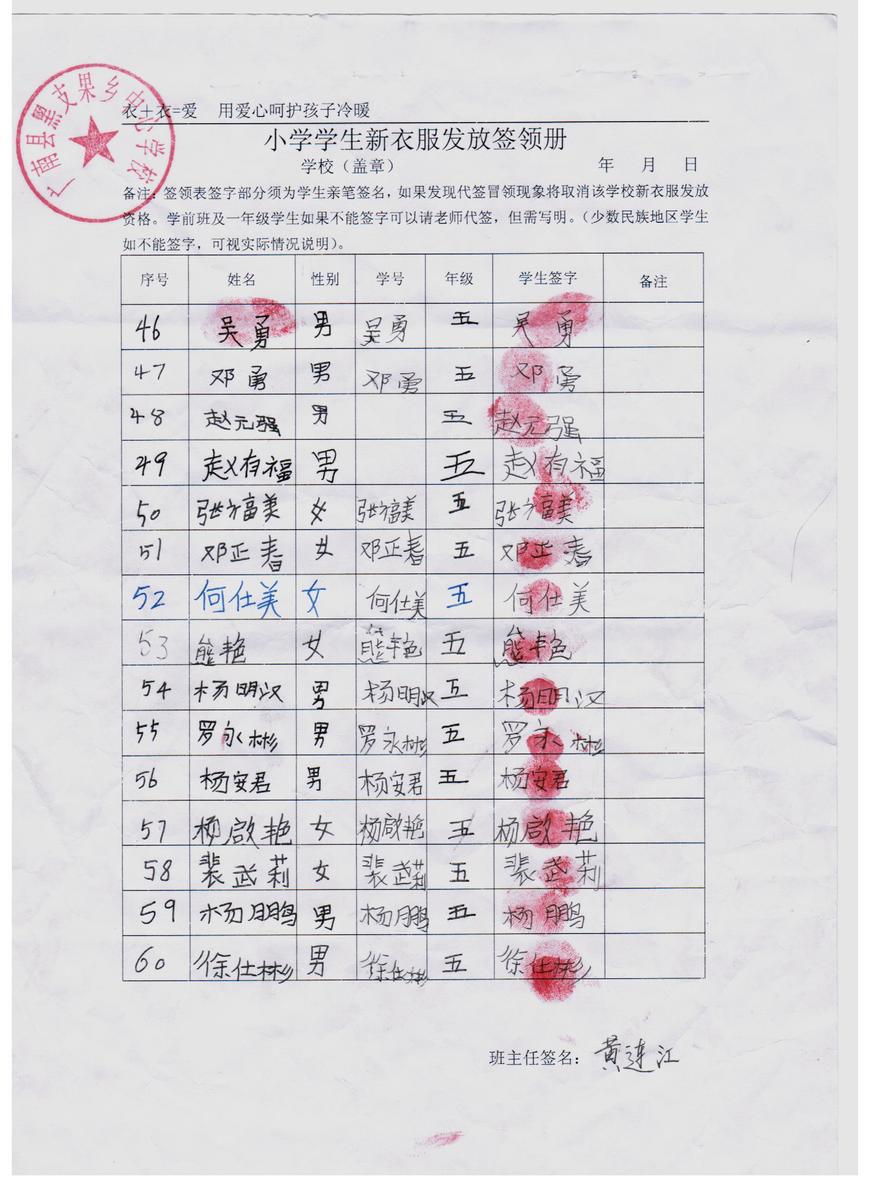 广南县黑支果乡中心学校
衣＋衣=爱 用爱心呵护孩子冷暖
小学学生新衣服发放签领册
学校（盖章） 年 月 日
备注：签领表签字部分须为学生亲笔签名，如果发现代签冒领现象将取消该学校新衣服发放
资格。学前班及一年级学生如果不能签字可以请老师代签，但需写明。（少数民族地区学生
如不能签字，可视实际情况说明）。
序号 姓名 性别 学号 年级 学生签字 备注
46 吴勇 男 吴勇 五 吴勇
47 邓勇 男 邓勇 五 邓勇
48 赵元强 男 五 赵元强
49 赵有福 男 五 赵有福
50 张富美 女 张富美 五 张富美
51 邓正春 女 邓正春 五 邓正春
52 何仕美 女 何仕美 五 何仕美
53 熊艳 女 熊艳 五 熊艳
54 杨明汉 男 杨明汉 五 杨明汉
55 罗永彬 男 罗永彬 五 罗永彬
56 杨安君 男 杨安君 五 杨安君
57 杨啟艳 女 杨啟艳 五 杨啟艳
58 裴武莉 女 裴武莉 五 裴武莉
59 杨鹏 男 杨鹏 五 杨鹏
60 徐仕彬 男 徐仕彬 五 徐仕彬
班主任签名：黄连江